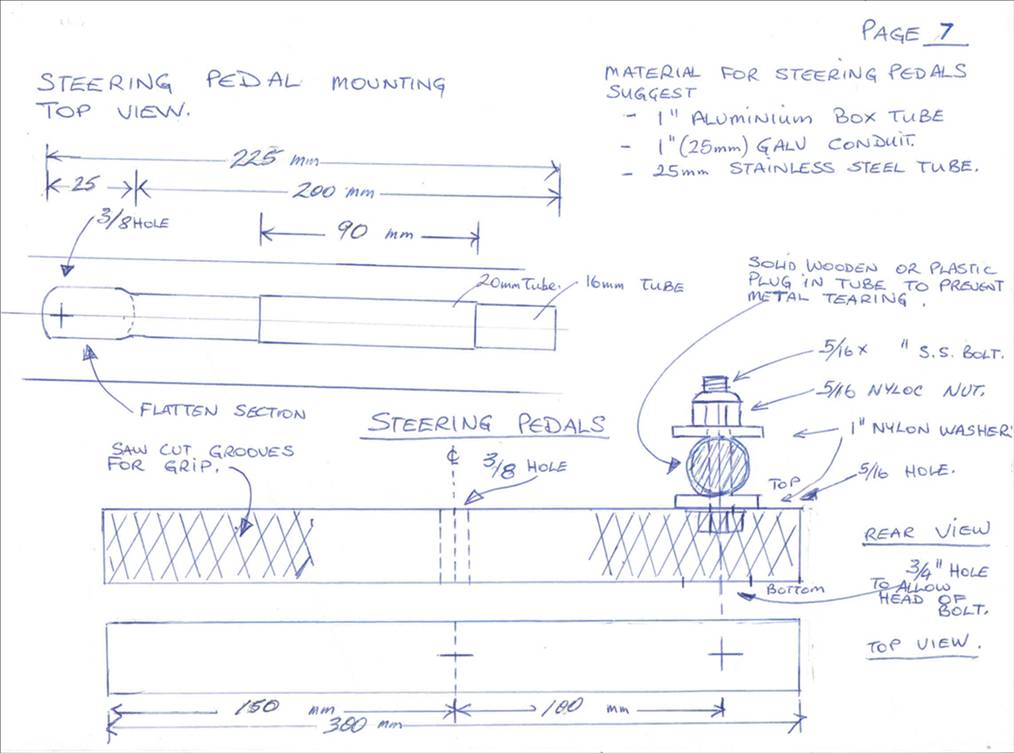 PAGE 7
STEERING PEDAL MOUNTING
TOP VIEW.
MATERIAL FOR STEERING PEDALS
SUGGEST
- 1" ALUMINIUM BOX TUBE
- 1" (25mm) GALV CONDUIT.
- 25mm STAINLESS STEEL TUBE.
225 mm
25
200 mm
3/8 HOLE
90 mm
20mm Tube.
16mm TUBE
SOLID WOODEN OR PLASTIC
PLUG IN TUBE TO PREVENT
METAL TEARING.
5/16 x " S.S. BOLT.
5/16 NYLOC NUT.
FLATTEN SECTION
STEERING PEDALS
1" NYLON WASHER.
SAW CUT GROOVES
FOR GRIP.
℄
3/8 HOLE
TOP
5/16 HOLE.
REAR VIEW
3/4" HOLE
TO ALLOW
HEAD OF
BOLT.
BOTTOM
TOP VIEW.
150 mm
100 mm
300 mm